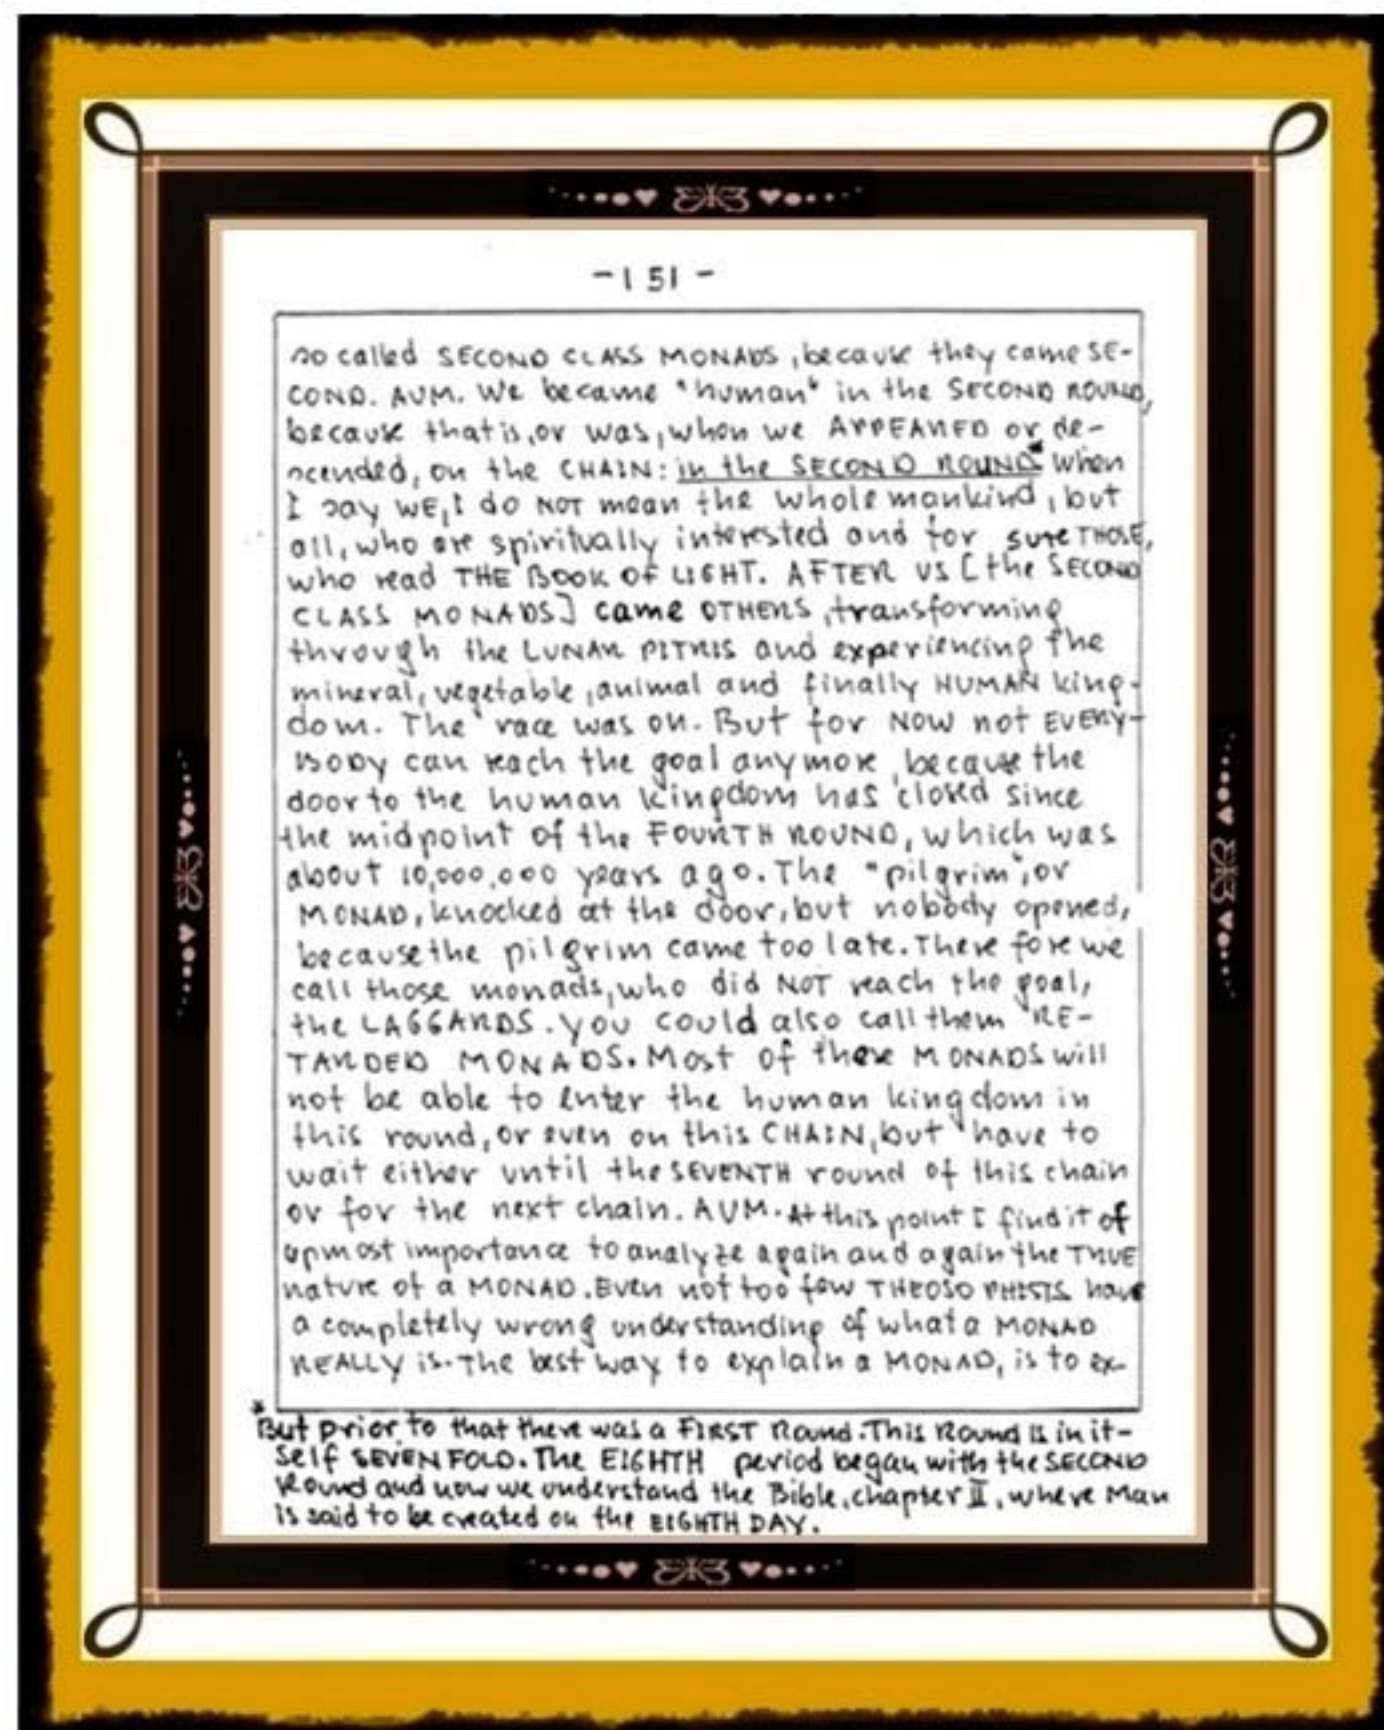 -151-
so called SECOND CLASS MONADS, because they came SE-
COND. AUM. We became "human" in the SECOND ROUND,
because that is, or was, when we APPEARED or de-
scended, on the CHAIN: in the SECOND ROUND* When
I say WE, I do NOT mean the whole mankind, but
all, who are spiritually interested and for sure THOSE,
who read THE BOOK OF LIGHT. AFTER US [the SECOND
CLASS MONADS] came OTHERS, transforming
through the LUNAR PITRIS and experiencing the
mineral, vegetable, animal and finally HUMAN king-
dom. The race was on. But for NOW not EVERY-
BODY can reach the goal anymore, because the
door to the human kingdom has closed since
the midpoint of the FOURTH ROUND, which was
about 10,000,000 years ago. The "pilgrim", or
MONAD, knocked at the door, but nobody opened,
because the pilgrim came too late. There fore we
call those monads, who did NOT reach the goal,
the LAGGARDS. You could also call them RE-
TARDED MONADS. Most of these MONADS will
not be able to enter the human kingdom in
this round, or even on this CHAIN, but have to
wait either until the SEVENTH round of this chain
or for the next chain. AUM. At this point I find it of
upmost importance to analyze again and again the TRUE
nature of a MONAD. Even not too few THEOSOPHISTS have
a completely wrong understanding of what a MONAD
REALLY is. The best way to explain a MONAD, is to ex-
*But prior to that there was a FIRST Round. This Round is in it-
self SEVENFOLD. The EIGHTH period began with the SECOND
Round and now we understand the Bible, chapter II, where Man
is said to be created on the EIGHTH DAY.